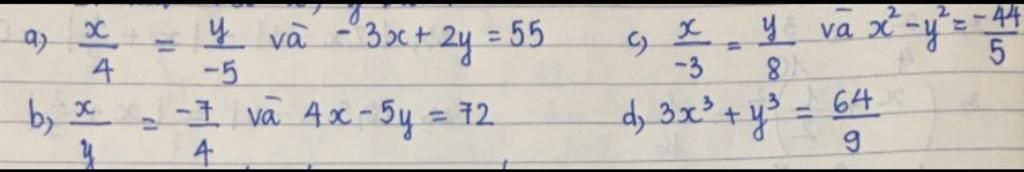 a) x/4 = y/-5 và -3x + 2y = 55
c) x/-3 = y/8 và x² - y² = -44/5
b) x/y = -7/4 và 4x - 5y = 72
d) 3x³ + y³ = 64/9